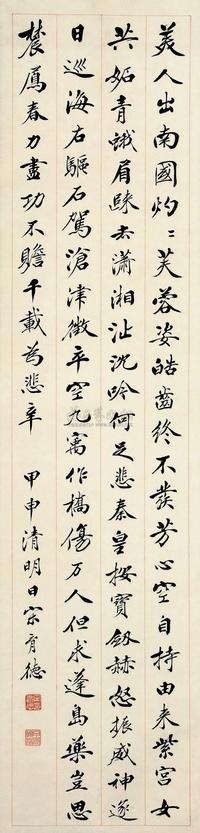 美人出南國灼〻芙蓉姿皓齒終不發芳心空自持由來紫宮女
共妬青蛾眉歸去瀟湘沚沈吟何足悲秦皇按寶劔赫怒振威神逐
日巡海右驅石駕滄津徵卒空九㝢作橋傷万人但求蓬島藥豈思
農鳸春力盡功不贍千載為悲辛 甲申清明日宋育德